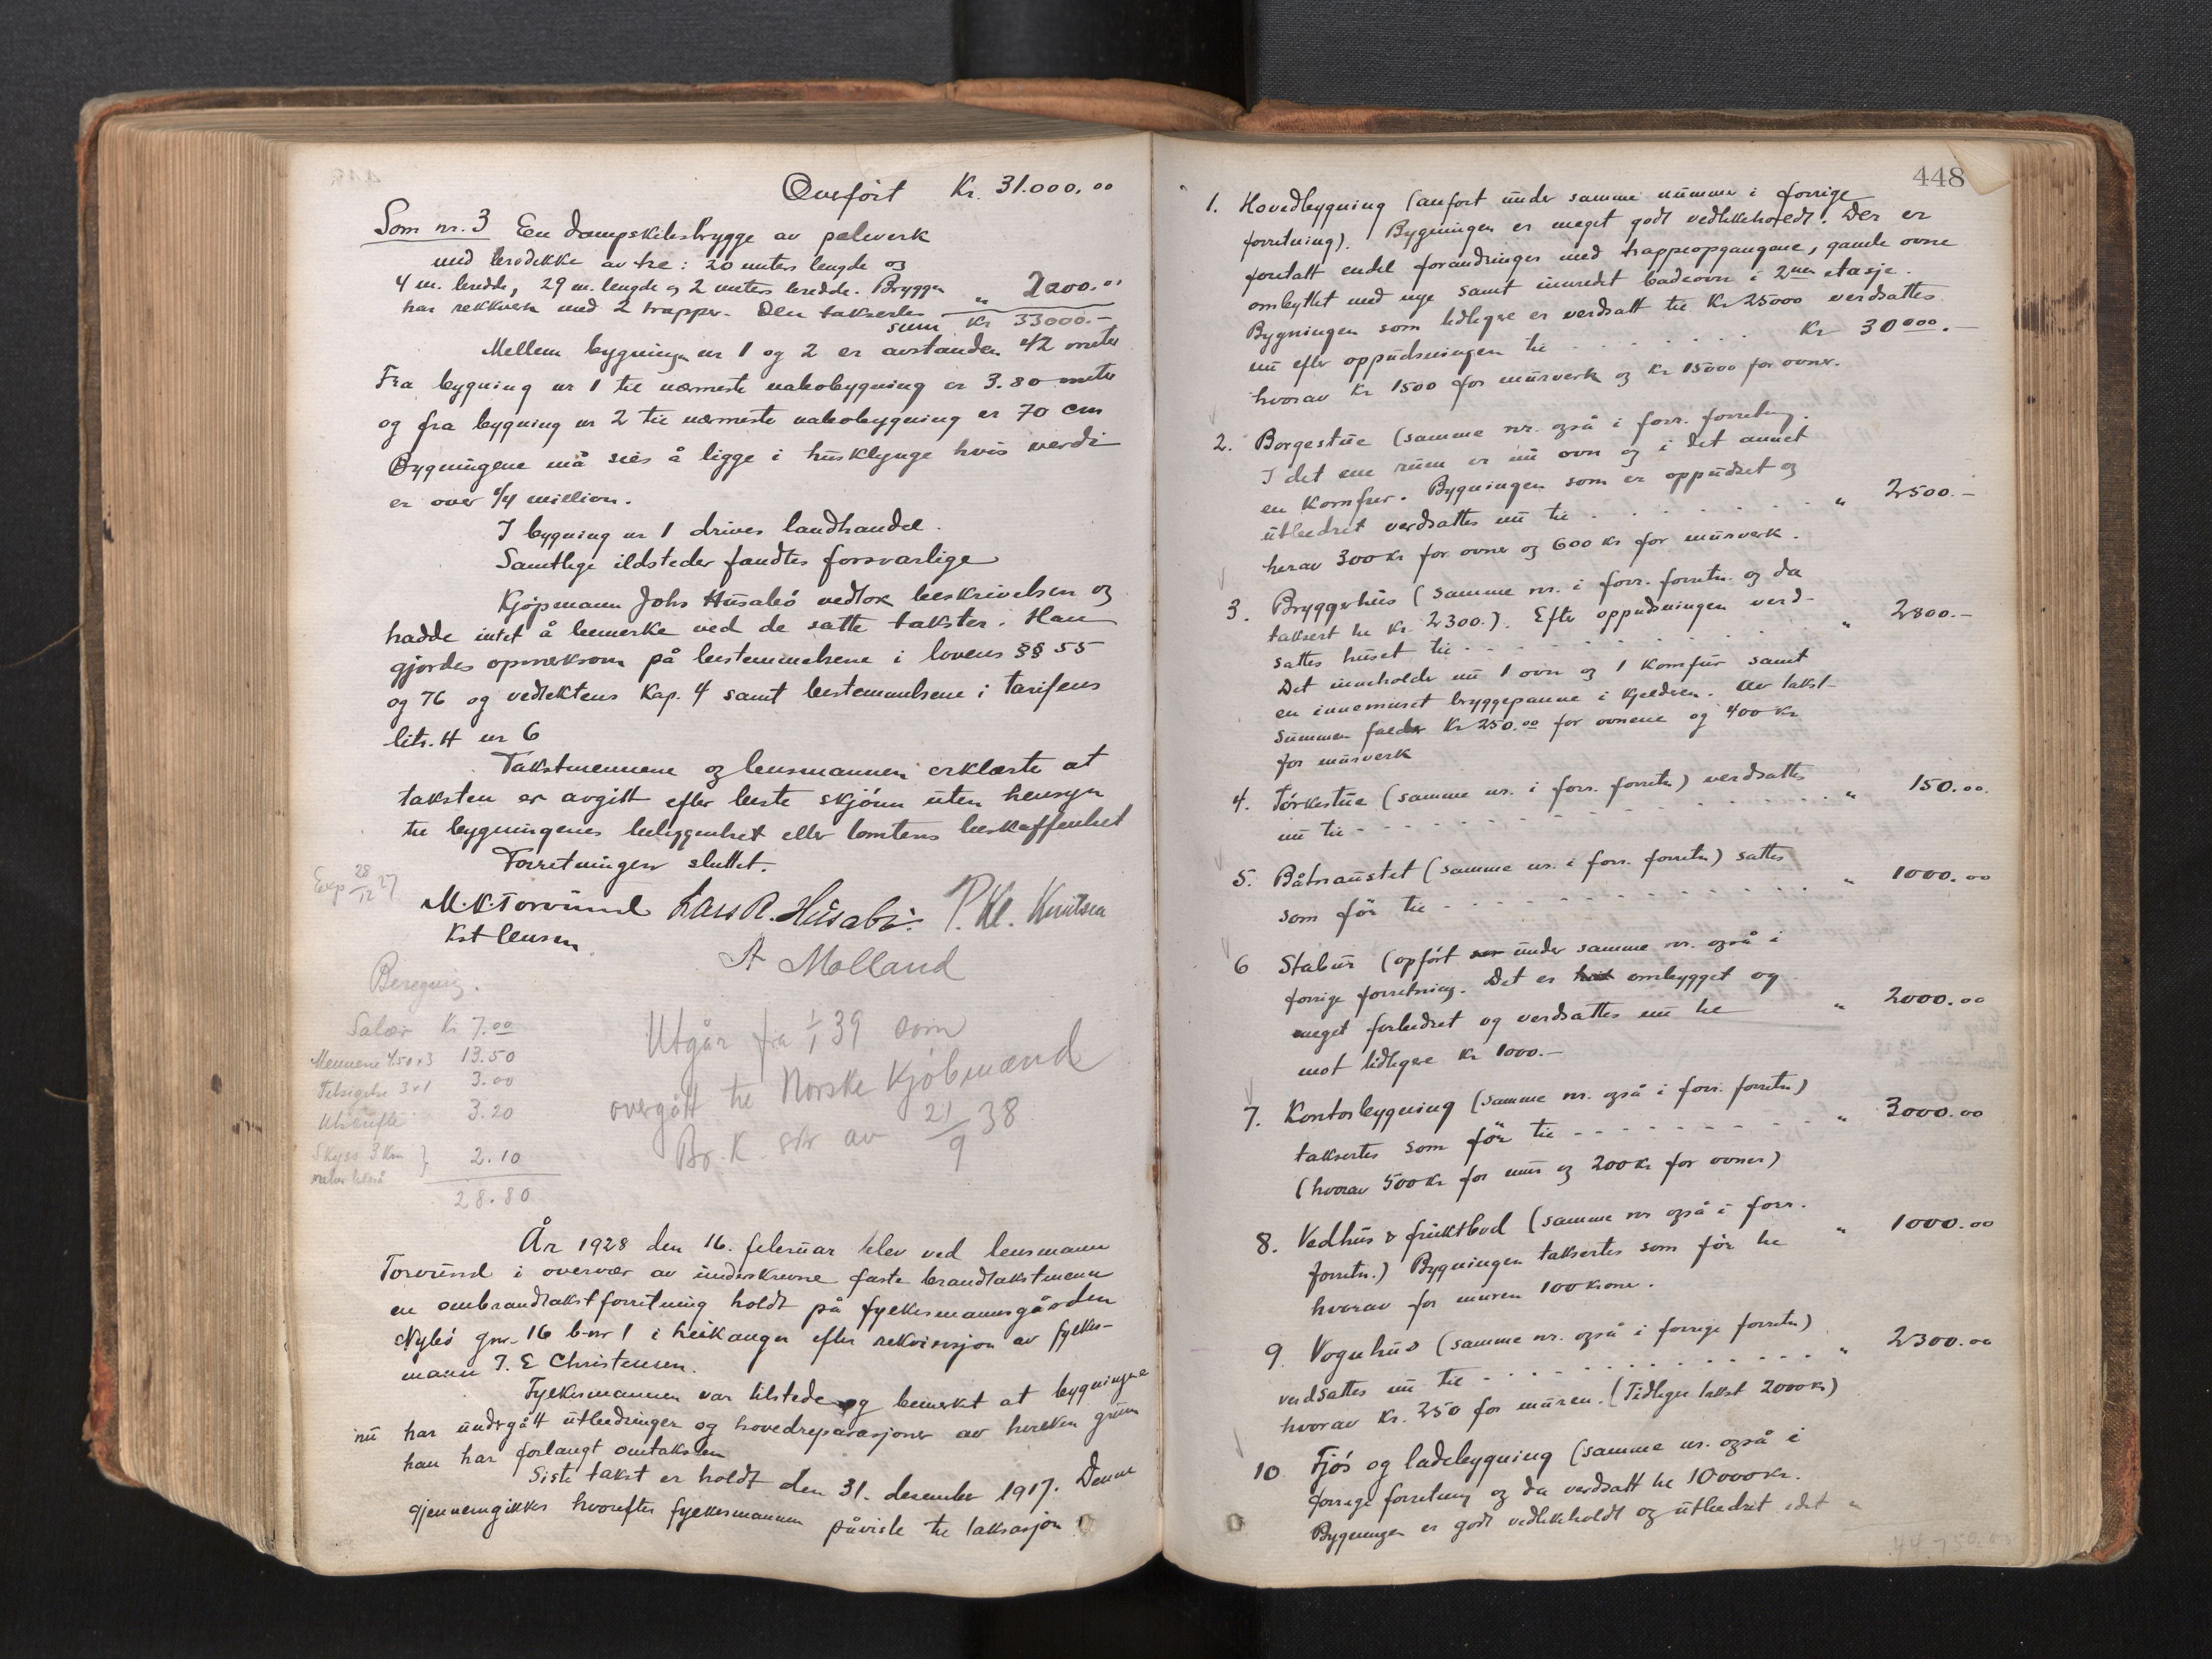 Overført Kr. 31.000.00
Som nr. 3 En dampskibsbrygge av peleverk
med brodekke av tre: 20 meters lengde og
4 m. bredde, 29 m. lengde og 2 meters bredde. Bryggen
har rekkverk med 2 trapper. Den taksertes " 2000.00
sum Kr 33000.-
Mellem bygningen nr 1 og 2 er avstanden 42 meter
Fra bygning nr 1 til nærmeste nabobygning er 3.80 meter
og fra bygning nr 2 til nærmeste nabobygning er 70 cm
Bygningene må sies å ligge i husklynge hvis verdi
er over 1/4 million.
I bygning nr 1 drives landhandel.
Samtlige ildsteder fandtes forsvarlige
Kjøpmann Johs Husabø vedtok beskrivelsen og
hadde intet å bemerke ved de satte takster. Han
gjordes opmerksom på bestemmelsene i lovens §§ 55
og 76 og vedtektens Kap. 4 samt bestemmelsene i tarifens
litr. H nr 6
Takstmennene og lensmannen erklærte at
taksten er avgitt efter beste skjønn uten hensyn
til bygningenes beliggenhet eller tomtens beskaffenhet
Forretningen sluttet.
Exp 28/12 27
M.K. Torvund Lars R. Husabø. P. Kl. Knutsen
Kst lensm.
A Molland
Beregning.
Salær Kr 7.00
Mennene 4.50x3 13.50
Tilsigelse 3x1 3.00
Utskrift 3.20
Skyss 3 km } 2.10
28.80
Utgår fra 1/1 39 som
overgått til Norske Kjøbmænd
Br. K. skr av 21/9 38
År 1928 den 16. februar blev ved lensmann
Torvund i overvær av underskrevne faste brandtakstmenn
en ombrandtakstforretning holdt på fylkesmannsgården
Nybø gnr. 16 b-nr 1 i Leikanger efter rekvisisjon av fylkes-
mann I. E Christensen.
Fylkesmannen var tilstede og bemerkt at bygningene
nu har undergått utbedringer og hovedreparasjoner av hvilken grunn
han har forlangt omtaksten
Siste takst er holdt den 31. desember 1917. Denne
gjennemgikkes hvorefter fylkesmannen påviste til taksasjon
448
1. Hovedbygning (anført under samme nummer i forrige
forretning). Bygningen er meget godt vedlikeholdt. Der er
foretatt endel forandringer med trappeopgangene, gamle ovne
ombyttet med nye samt innredet badeovn i 2nen etasje.
Bygningen som tidligere er verdsatt til Kr 25000 verdsattes
nu efter oppudsningen til - - - - Kr 30000.-
hvorav Kr 1500 for murverk og Kr 15000 for ovner.
2. Borgestue (samme nr. også i forr. forretning.
I det ene rum er nu ovn og i det annet
en Komfur. Bygningen som er oppudset og
utbedret verdsattes nu til - - - - " 2500.-
herav 300 kr for ovner og 600 kr for murverk.
3. Bryggerhus (samme nr. i forr. forretn. og da
taksert til Kr. 2300.). Efter oppudsningen verd-
sattes huset til - - - - " 2800.-
Det inneholder nu 1 ovn og 1 Komfur samt
en innemuret bryggepanne i kjelderen. Av takst-
summen falder Kr 250.00 for ovnene og 400 kr
for murverk
4. Tørkestue (samme nr. i forr. forretn) verdsattes
nu til - - - - " 150.00
5. Båtnaustet (samme nr. i forr. forretn) sattes
som før til - - - - " 1000.00
6 Stabur (opført under samme nr. også i
forrige forretning. Det er ombygget og
meget forbedret og verdsattes nu til " 2000.00
mot tidligere Kr 1000.-
7. Kontorbygning (samme nr. også i forr. forretn)
taksertes som før til - - - - " 3000.00
(hvorav 500 kr for mur og 200 kr for ovner)
8. Vedhus & fruktbod (samme nr også i forr.
forretn.) Bygningen taksertes som før til " 1000.00
hvorav for muren 100 kroner.
9. Vognhus (samme nr. også i forrige forretn)
verdsattes nu til - - - - " 2300.00
hvorav Kr. 250 for muren. (Tidligere takst 2000 kr)
10 Fjøs og ladebygning (samme nr. også i
forrige forretning og da verdsatt til 10000 kr.
Bygningen er godt vedlikeholdt og utbedret idet
44.750.00